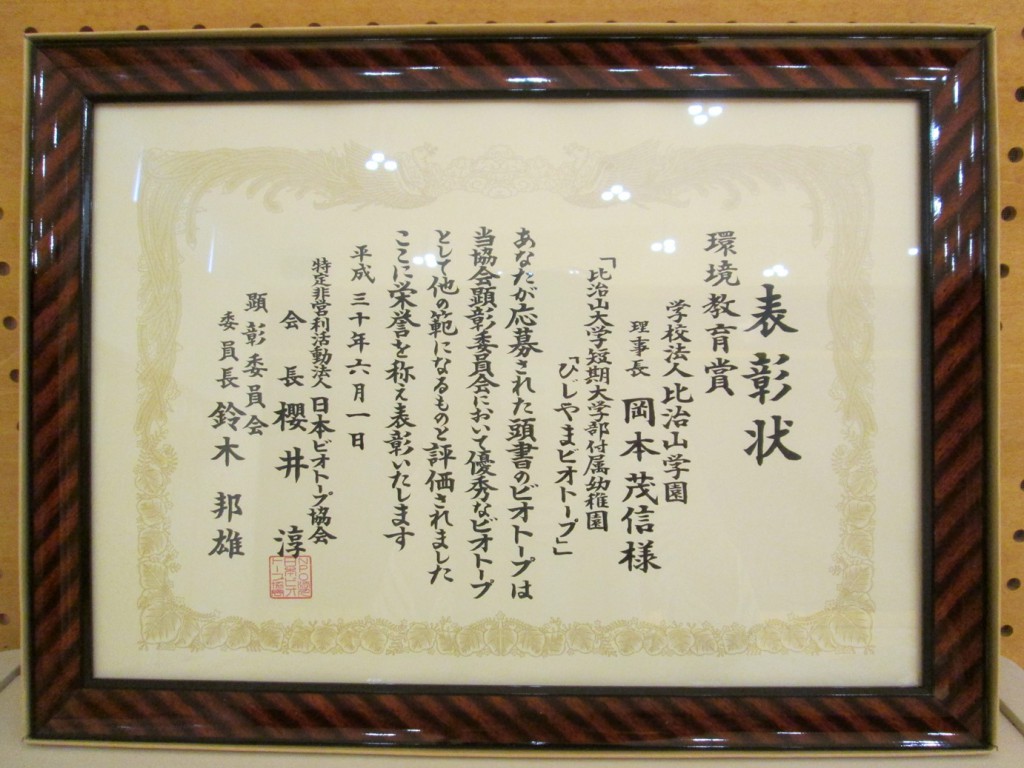 表彰状
環境教育賞
学校法人比治山学園
理事長 岡本茂信様
「比治山大学短期大学部付属幼稚園
「ひじやまビオトープ」」
あなたが応募された頭書のビオトープは
当協会顕彰委員会において優秀なビオトープ
として他の範になるものと評価されました
ここに栄誉を称え表彰いたします
平成三十年六月一日
特定非営利活動法人 日本ビオトープ協会
会長 櫻井 淳
顕彰委員会
委員長 鈴木 邦雄